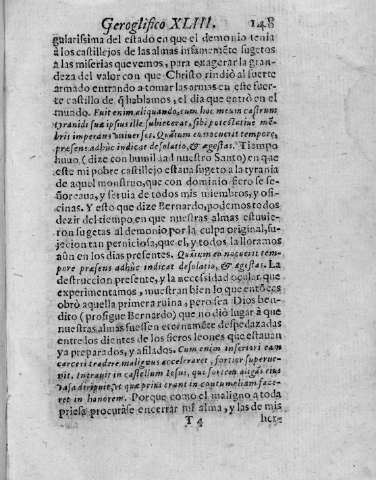 Geroglifico XLIII. 148
gularissima del estado en que el demonio tenia
à los castillejos de las almas infamemẽte sugetos
à las miserias que vemos, para exagerar la gran-
deza del valor con que Christo rindiò al fuerte
armado entrando a tomar las armas en este fuer-
te castillo de q̃ hablamos, el dia que entrò en el
mundo. Fuit enim aliquando, cum hoc meum castrum
tyranidi suæ ipsus ille subiecerat, sibi potestatiue mẽ-
bris imperans vniuerses. Quãtum eo nocuerit tempore,
præsens adhùc indicat desolatio, & ægestas. Tiempo
huuo (dize con humildad nuestro Santo) en que
este mi pobre castillejo estaua sugeto a la tyrania
de aquel monstruo, que con dominio fiero se se-
ñoreaua, y seruia de todos mis miembros, y ofi-
cinas. Y esto que dize Bernardo, podemos todos
dezir del tiempo, en que nuestras almas estuuie-
ron sugetas al demonio por la culpa original, su-
jecion tan perniciosa, que el, y todos la lloramos
aũn en los dias presentes. Quãtum eo nocuerit tem-
pore præsens adhùc indicat desolatio, & ægestas. La
destruccion presente, y la necessidad ocular que
experimentamos, muestran bien lo que entõces
obrò aquella primera ruina, pero sea Dios ben-
dito (prosigue Bernardo) que no diò lugar à que
nuestras almas fuessen eternamẽte despedazadas
entre los dientes de los fieros leones que estauan
ya preparados, y afilados. Cum enim inferiori eam
carceri tradere malignus acceleraret, fortior superue-
nit. Intrauit in castellum Iesus, qui fortem alligãs eius
vasa diripuit, vt quæ prius erant in contumeliam face-
ret in honorem. Porque como el maligno a toda
priesa procurase encerrar mi alma, y las de mis
T 4 her-